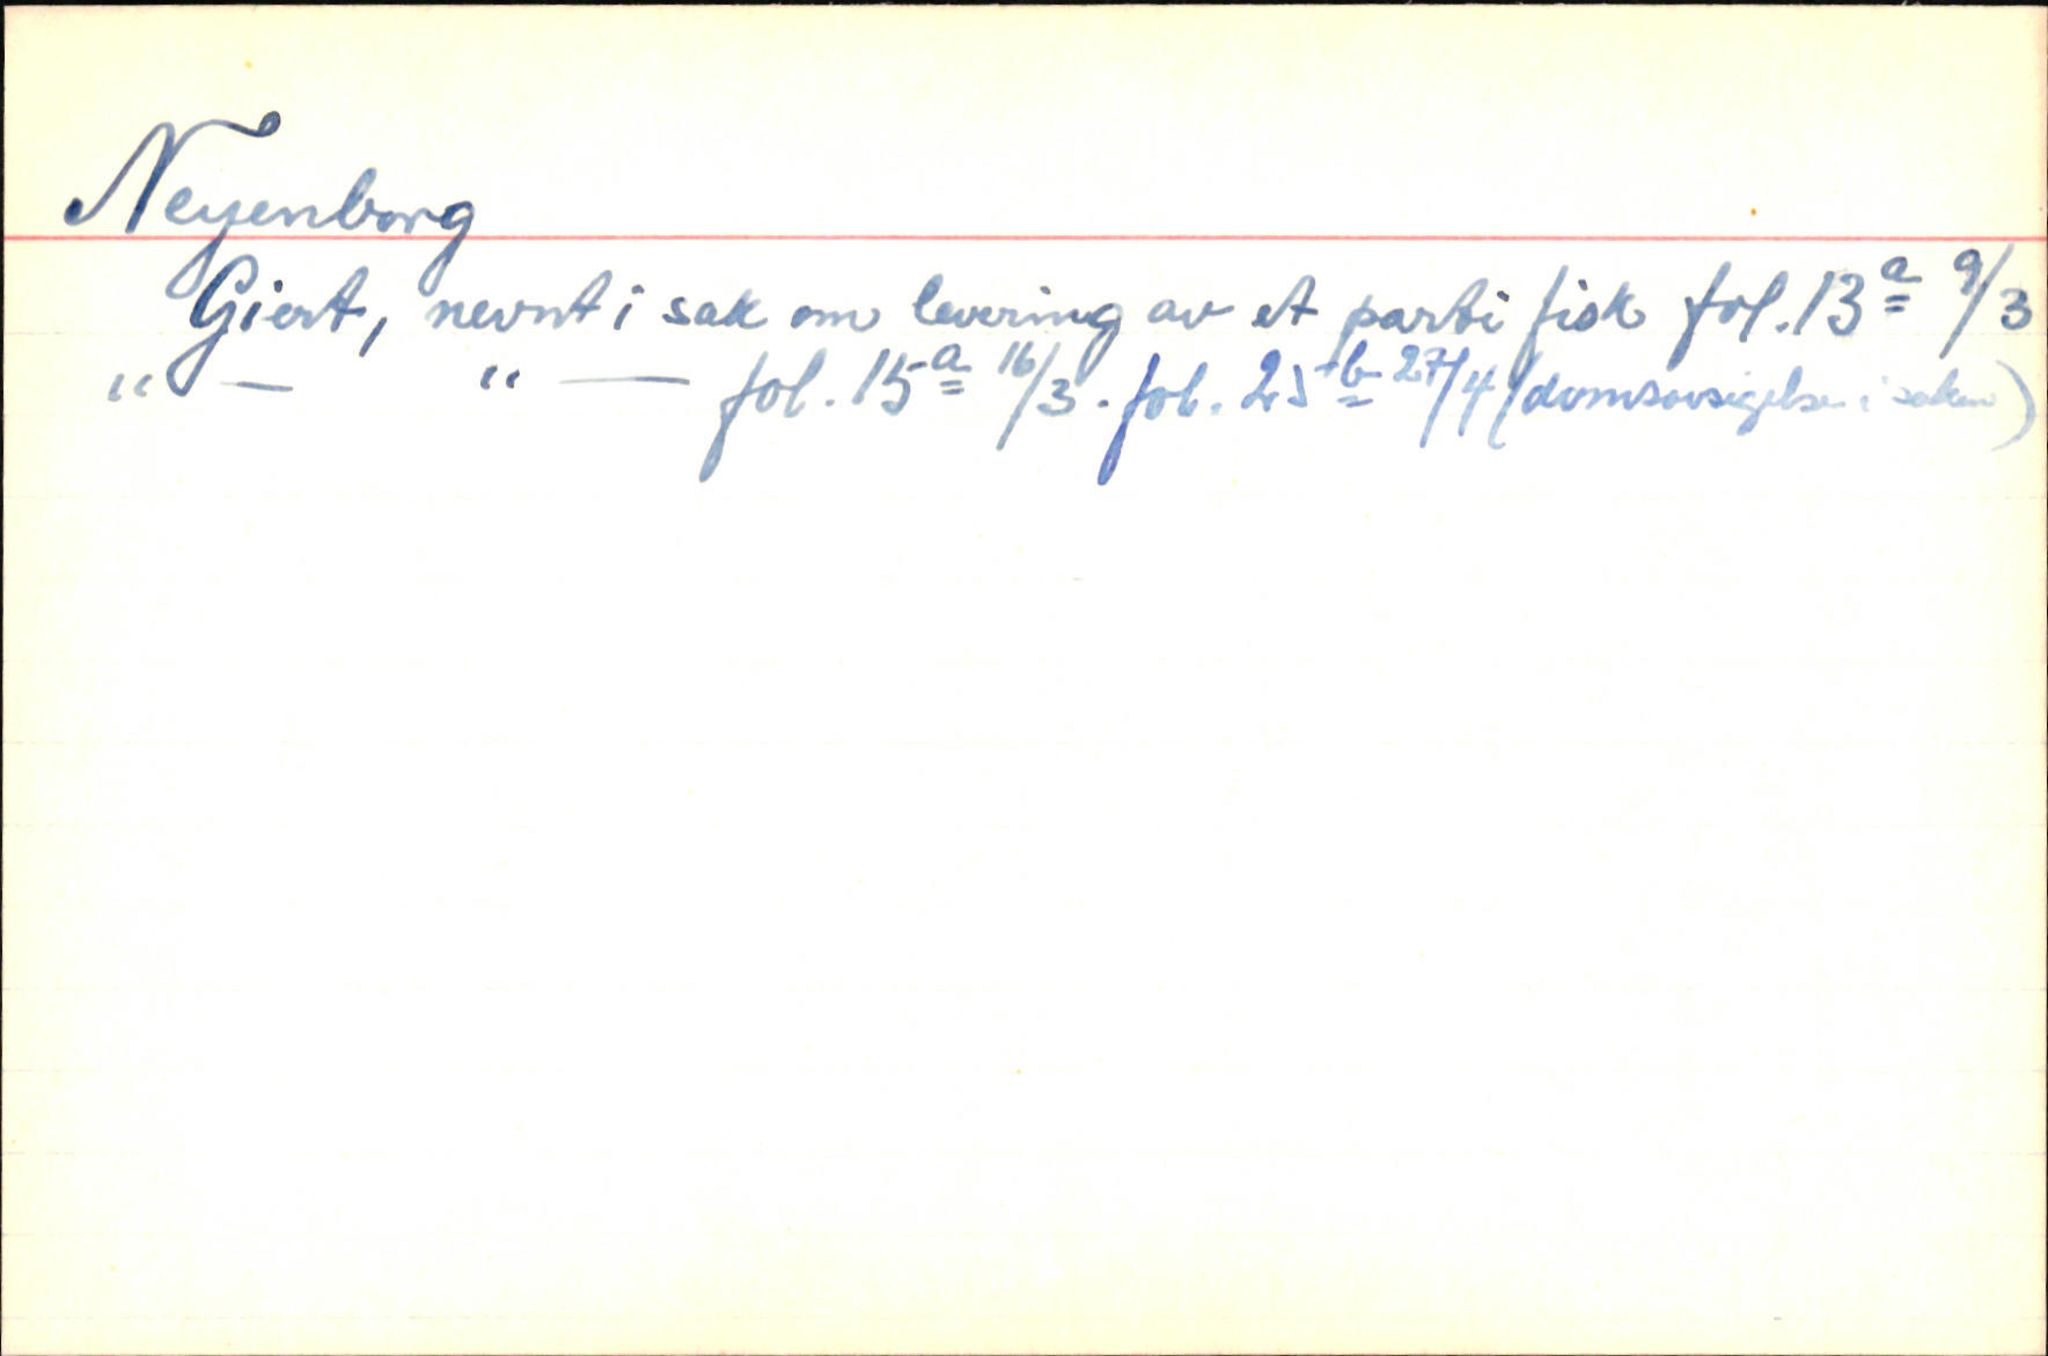 Neyenborg
Giert, nevnt i sak om levering av et parti fisk fol. 13a 9/3
" — " — fol. 15a 16/3. fol. 25b 27/4 (domsavsigelse i saken)